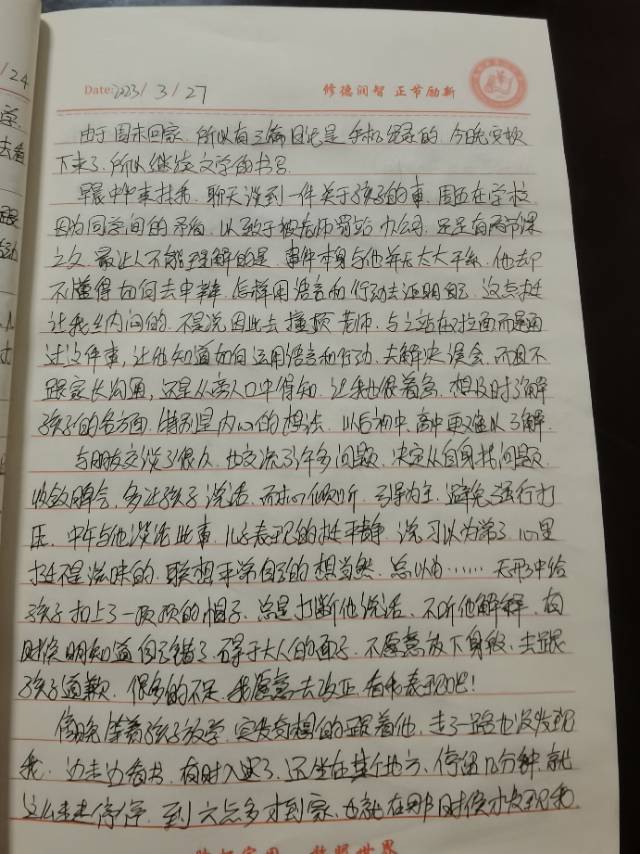 /24
Date: 2023/3/27
修德润智 正节励新
由于周末回家，所以有三篇日记是手机记录的，今晚安顿
下来了，所以继续文字的书写
早晨中午来找我，聊天谈到一件关于孩子的事，周五在学校
因为同学间的矛盾，以致于被老师罚站办公司，还是有两节课
之久，最让人不能理解的是，事件本身与他并无太大干系，他却
不懂得如何去申辩，怎样用语言和行动去证明自己，这点挺
让我纳闷的，不是说因此去撞顶老师，与之站在对立面而是通
过这件事，让他知道如何运用语言和行动，去解决误会，而且不
跟家长沟通，还是从旁人口中得知，让我也很着急，想及时了解
孩子的各方面，特别是内心的想法，以后初中、高中更难以了解．
与朋友交谈了很久，也交流了许多问题，决定从自身找问题，
收敛脾气，多让孩子说话，耐心倾听，引导为主，避免强行打
压，中午与他谈论此事，儿子表现的挺平静，说习以为常了，心里
挺不是滋味的，联想平常自己的想当然，总以为……无形中给
孩子扣上了一顶顶的帽子，总是打断他说话，不听他解释，有
时候明知道自己错了，碍于大人的面子，不愿意放下身段，去跟
孩子道歉，很多的不足，我愿意去改正，看我表现吧！
傍晚等着孩子放学，突发奇想的跟着他，走了一路也没发现
我，边走边看书，有时入迷了，还坐在某个地方，停留几分钟，就
这么走走停停，到六点多才到家，也就在那时候才发现我